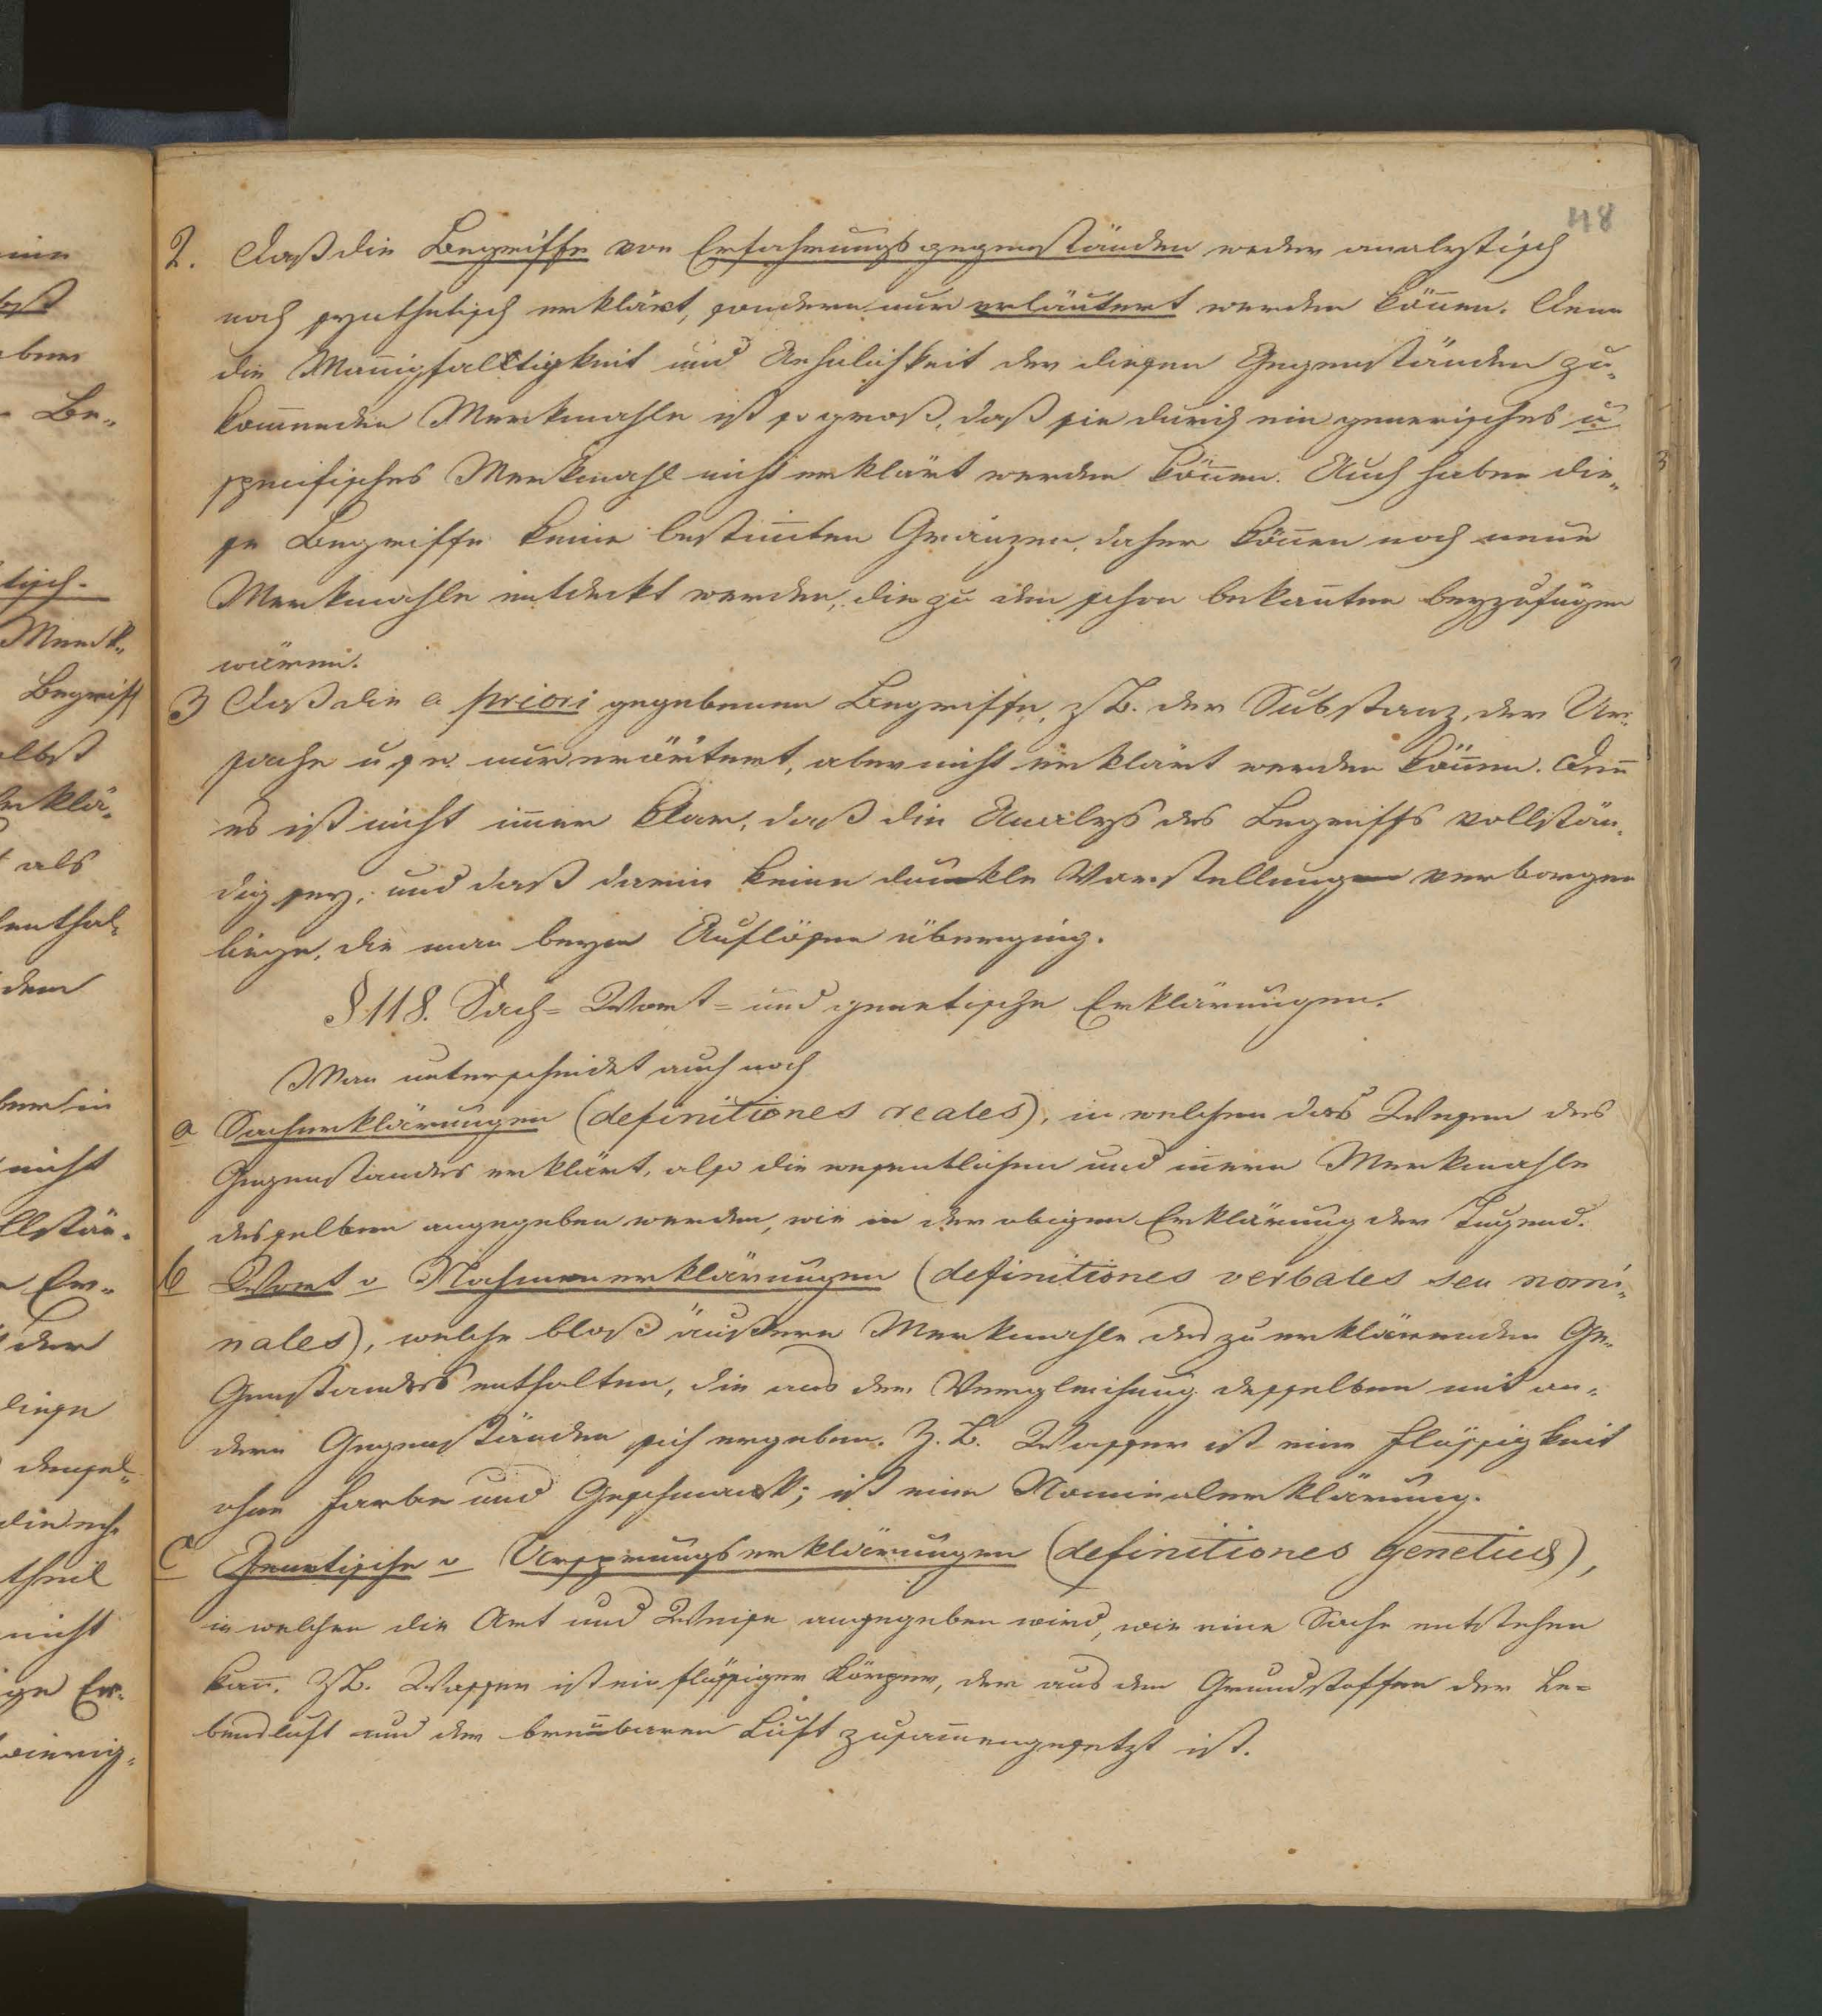 48
2. Daß die Begriffe von Erfahrungsgegenständen weder analytisch
noch synthetisch erklärt, sondern nur erläutert werden können. Denn
die Mannigfaltigkeit und Aehnlichkeit der diesen Gegenständen zu-
kommenden Merkmahle ist so groß, daß sie durch ein generisches u.
specifisches Merkmahl nicht erklärt werden können. Auch haben die-
se Begriffe keine bestimmten Gränzen, daher können noch neue
Merkmahle entdeckt werden, die zu den schon bekannten beyzufügen
wären.
3 Daß die a priori gegebenen Begriffe, z.B. der Substanz, der Ur-
sache u s w. nur erörtert, aber nicht erklärt werden können. Denn
es ist nicht immer klar, daß die Analys des Begriffs vollstän-
dig sey, und daß darin keine dunkle Vorstellung verborgen
liege, die man beym Auflösen überging.
§ 118. Sach- Wort- und genetische Erklärungen.
Man unterscheidet auch noch
a Sacherklärungen (definitiones reales), in welchen das Wesen des
Gegenstandes erklärt, also die wesentlichen und innern Merkmahle
desselben angegeben werden, wie in der obigen Erklärung der Tugend.
b Wort o Nahmenerklärungen (definitiones verbales seu nomi-
nales), welche bloß äußere Merkmahle des zu erklärenden Ge-
genstandes enthalten, die aus der Vergleichung desselben mit an-
dern Gegenständen sich ergeben. Z.B. Wasser ist eine Flüssigkeit
ohne Farbe und Geschmack; ist eine Nominalerklärung.
c Genetische o Ursprungserklärungen (definitiones geneticæ),
in welchen die Art und Weise angegeben wird, wie eine Sache entstehen
kann. Z.B. Wasser ist ein flüssiger Körper, der aus den Grundstoffen der Le-
bensluft und der brennbaren Luft zusammengesetzt ist.